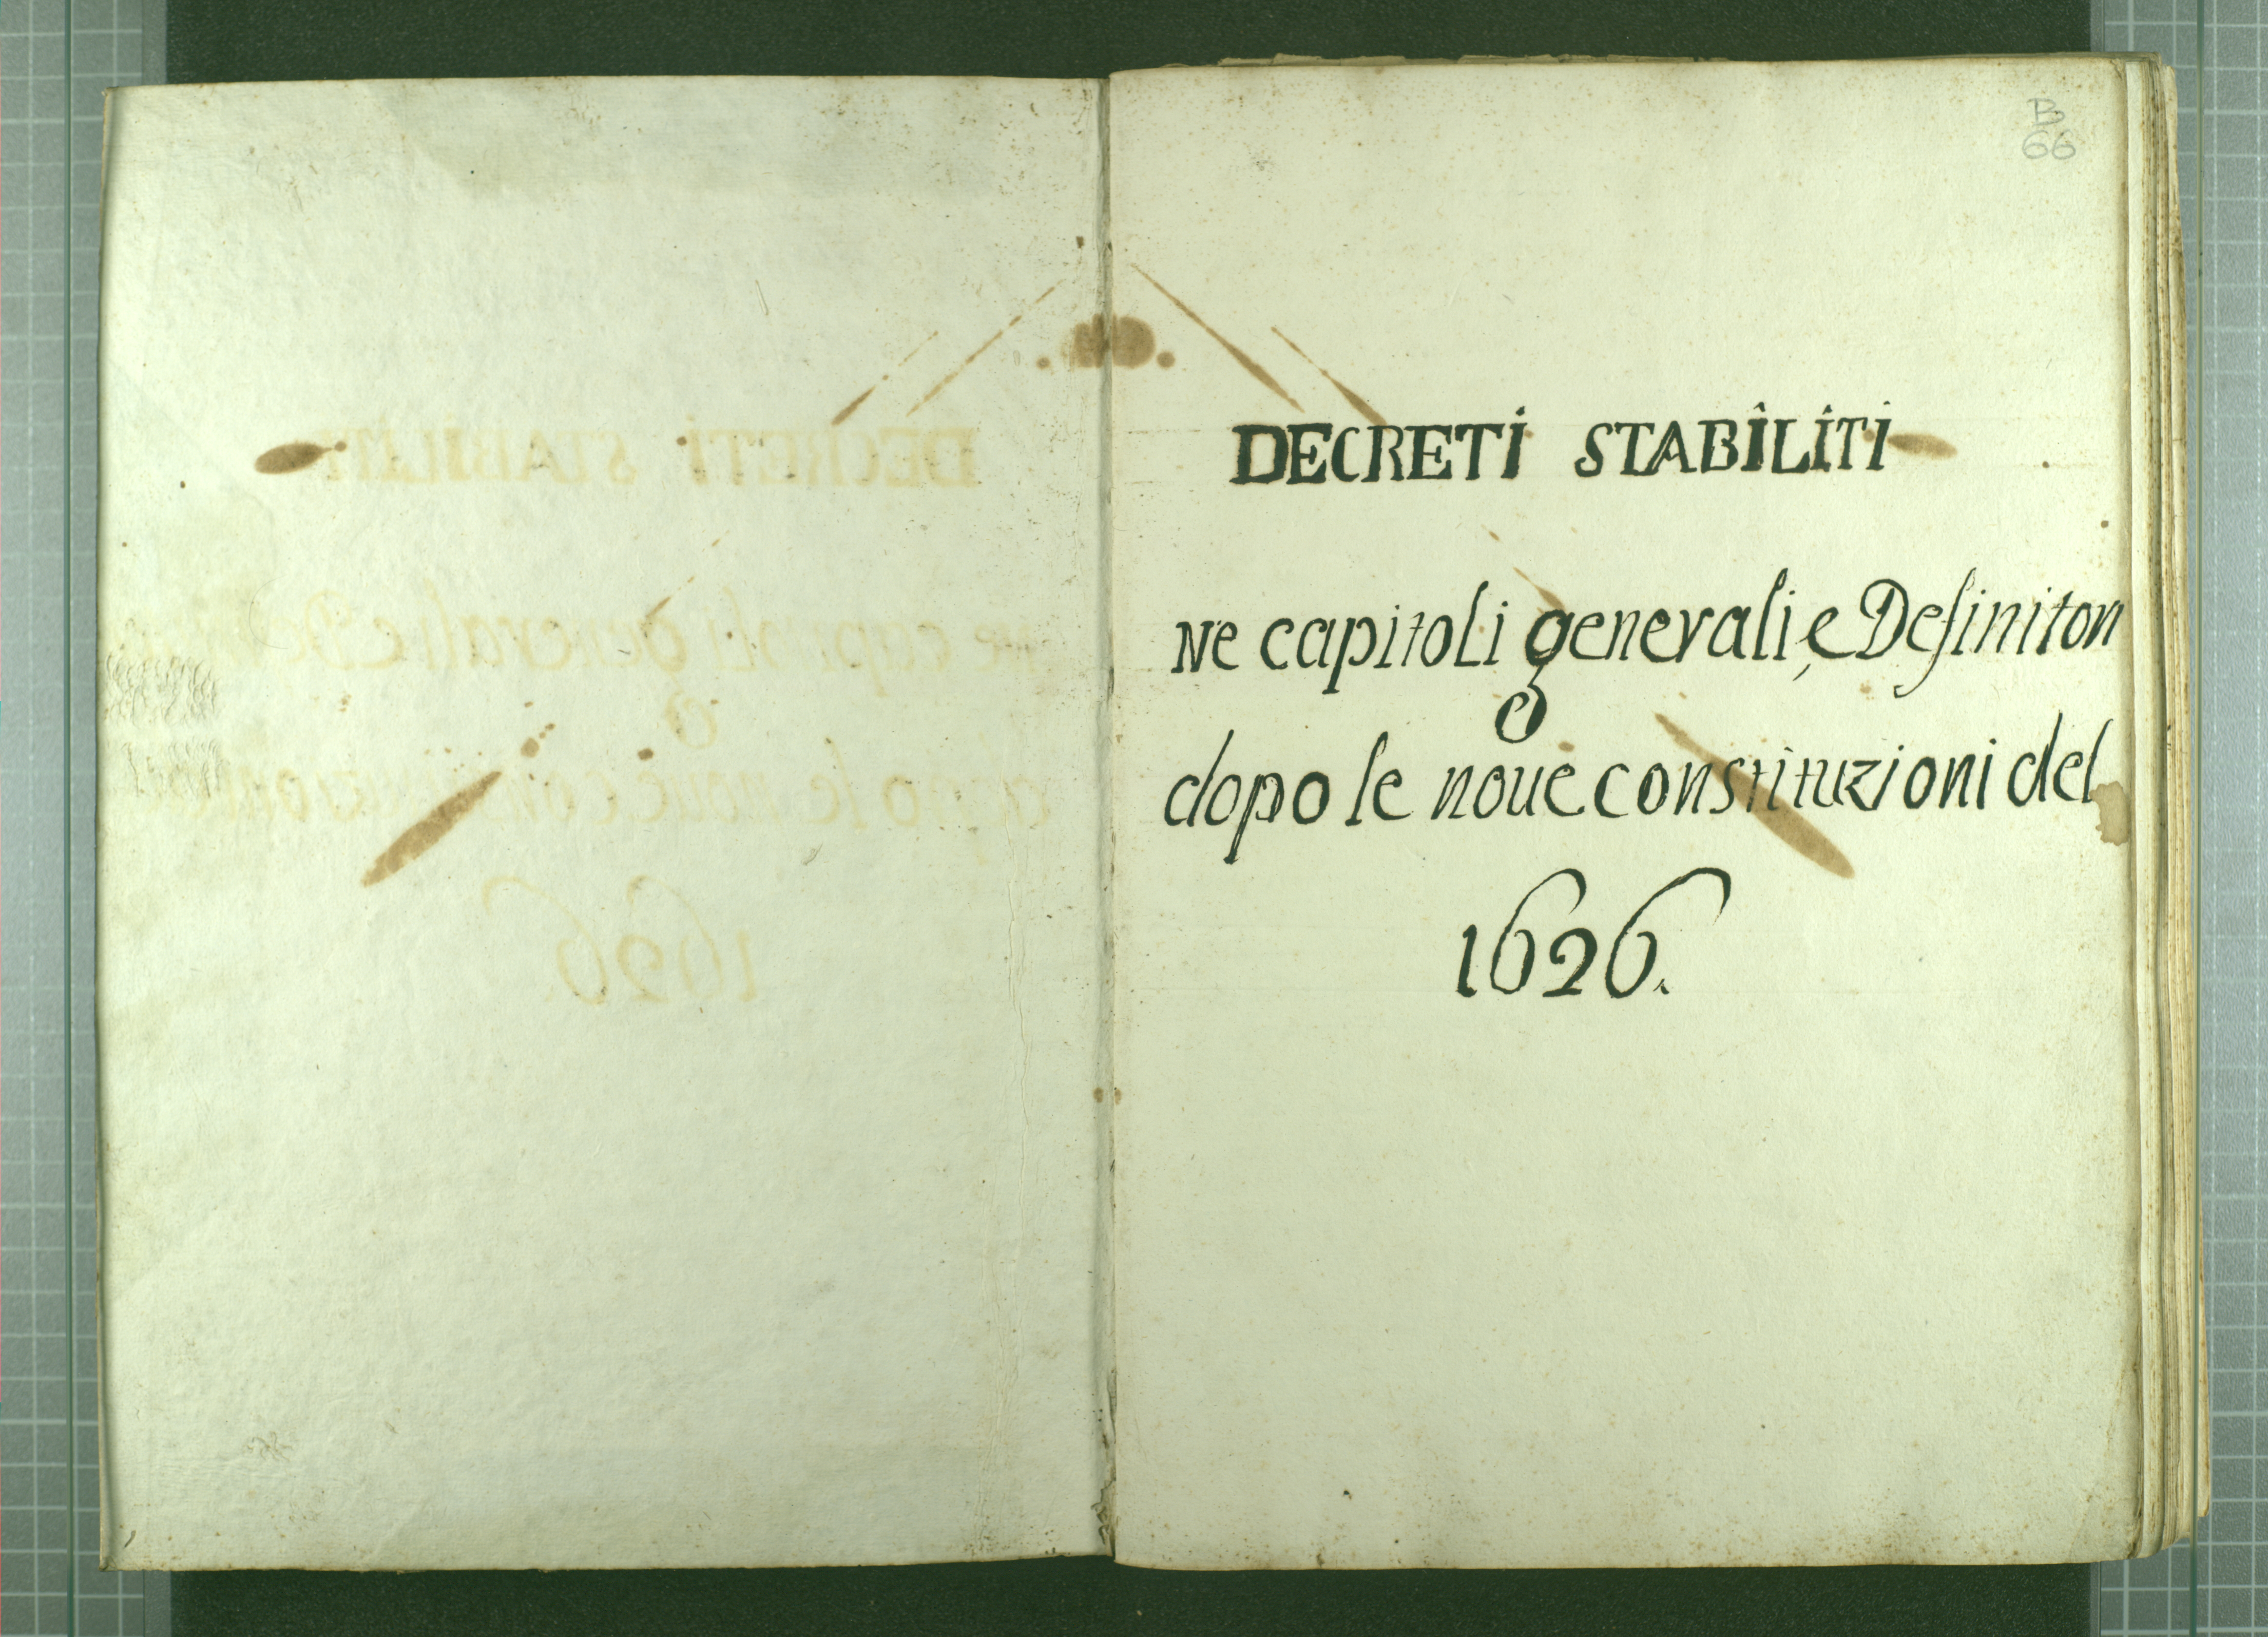 B
66
DECRETI STABILITI
Ne capitoli generali, e Definitori
dopo le noue constituzioni del
1626.